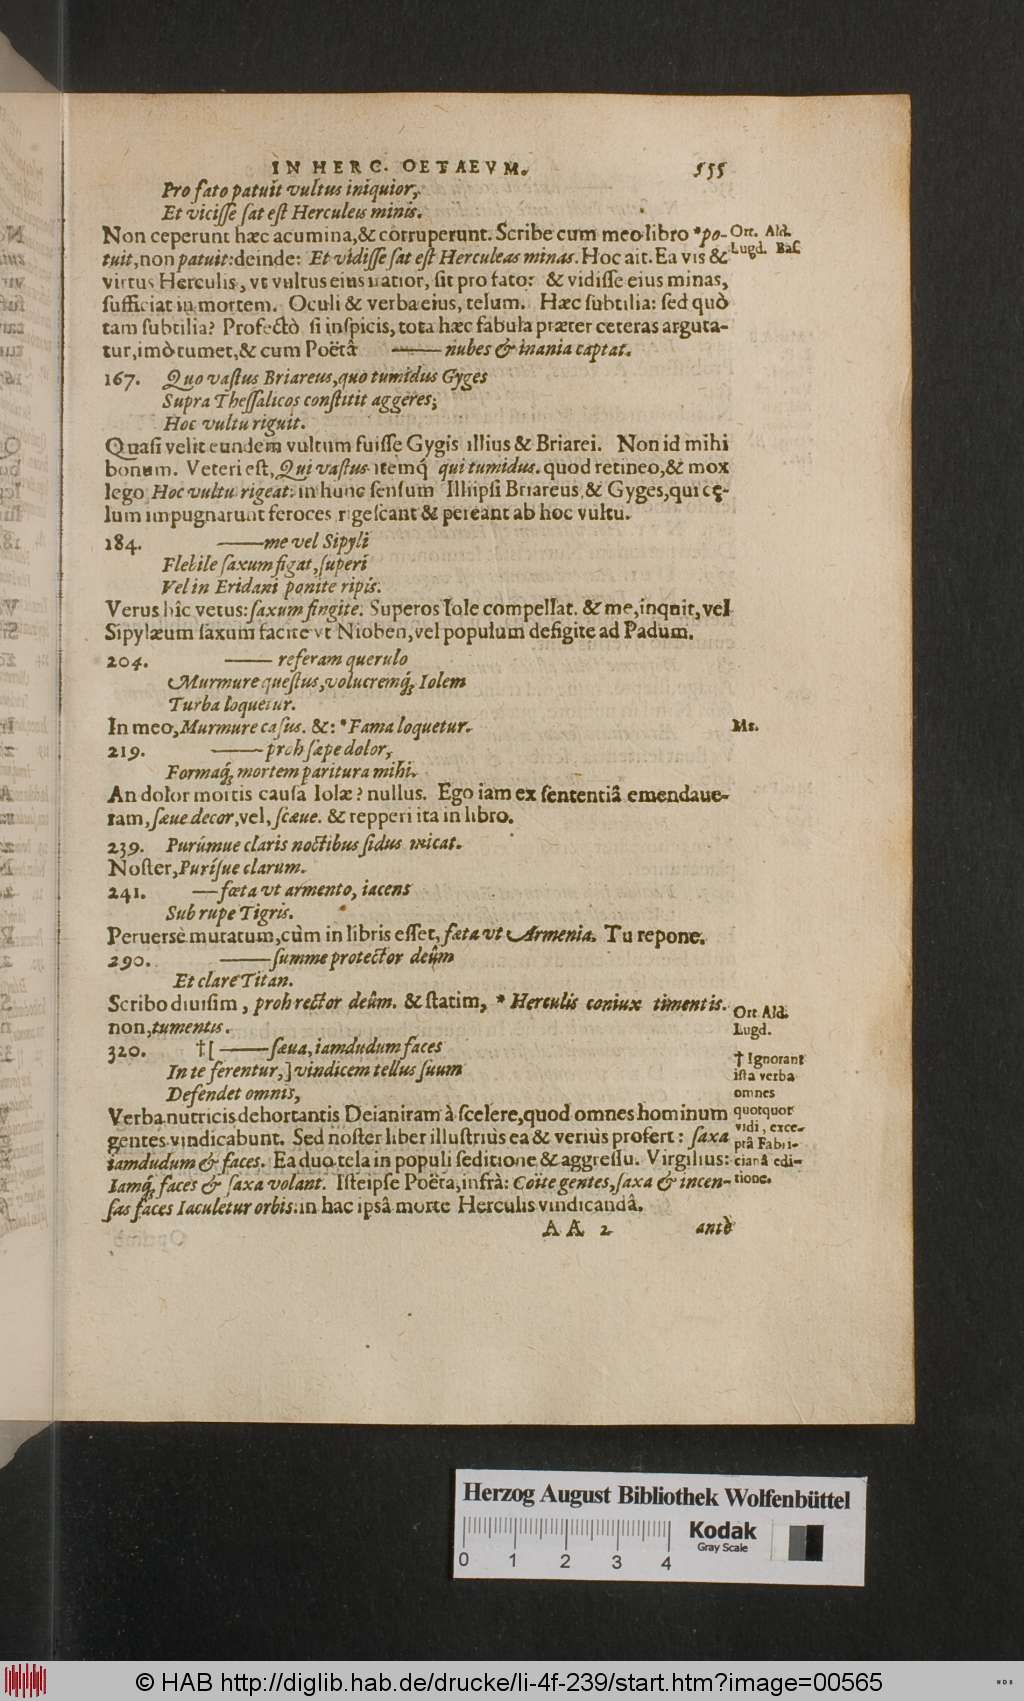 IN HERC. OETAEVM. 555
Pro fato patuit vultus iniquior,
Et vicisse sat est Herculeis minis.
Non ceperunt hæc acumina, & corruperunt. Scribe cum meo libro *po-
tuit, non patuit: deinde: Et vidisse sat est Herculeas minas. Hoc ait. Ea vis &
virtus Herculis, vt vultus eius iratior, sit pro fato: & vidisse eius minas,
sufficiat in mortem. Oculi & verba eius, telum. Hæc subtilia: sed quò
tam subtilia? Profectò si inspicis, tota hæc fabula præter ceteras arguta-
tur, imò tumet, & cum Poëtâ —— nubes & inania captat.
Ort. Ald.
Lugd. Bas.
167. Quo vastus Briareus, quo tumidus Gyges
Supra Thessalicos constitit aggeres;
Hoc vultu riguit.
Quasi velit eundem vultum fuisse Gygis illius & Briarei. Non id mihi
bonum. Veteri est, Qui vastus itemq́ qui tumidus. quod retineo, & mox
lego Hoc vultu rigeat: in hunc sensum Illi ipsi Briareus & Gyges, qui cę-
lum impugnarunt feroces rigescant & pereant ab hoc vultu.
184. ——me vel Sipyli
Flebile saxum figat, superi
Vel in Eridani ponite ripis.
Verus hîc vetus: saxum fingite. Superos Iole compellat. & me, inquit, vel
Sipylæum saxum facite vt Nioben, vel populum defigite ad Padum.
204. —— referam querulo
Murmure questus, volucremq́; Iolem
Turba loquetur.
In meo, Murmure casus. &: *Fama loquetur.
Ms.
219. ——proh sæpe dolor,
Formaq́; mortem paritura mihi.
An dolor mortis causa Iolæ? nullus. Ego iam ex sententiâ emendaue-
ram, sæue decor, vel, scæue. & repperi ita in libro.
239. Purúmue claris noctibus sidus micat.
Noster, Purísue clarum.
241. —fœta vt armento, iacens
Sub rupe Tigris.
Peruersè mutatum, cùm in libris esset, fæta vt Armenia. Tu repone.
290. ——summe protector deûm
Et clare Titan.
Scribo diuisim, proh rector deûm. & statim, * Herculis coniux timentis.
non, tumentis.
Ort Ald.
Lugd.
320. †[ ——sæua, iamdudum faces
In te ferentur,] vindicem tellus suum
Defendet omnis,
Verba nutricis dehortantis Deianiram à scelere, quod omnes hominum
gentes vindicabunt. Sed noster liber illustriùs ea & veriùs profert: saxa
iamdudum & faces. Ea duo tela in populi seditione & aggressu. Virgilius:
Iamq́; faces & saxa volant. Isteipse Poëta, infrà: Coite gentes, saxa & incen-
sas faces Iaculetur orbis: in hac ipsâ morte Herculis vindicandâ.
† Ignorant
ista verba
omnes
quotquot
vidi, exce-
ptâ Fabri-
cianâ edi-
tione.
AA 2 antè
Herzog August Bibliothek Wolfenbüttel
0 1 2 3 4
Kodak
Gray Scale
© HAB http://diglib.hab.de/drucke/li-4f-239/start.htm?image=00565